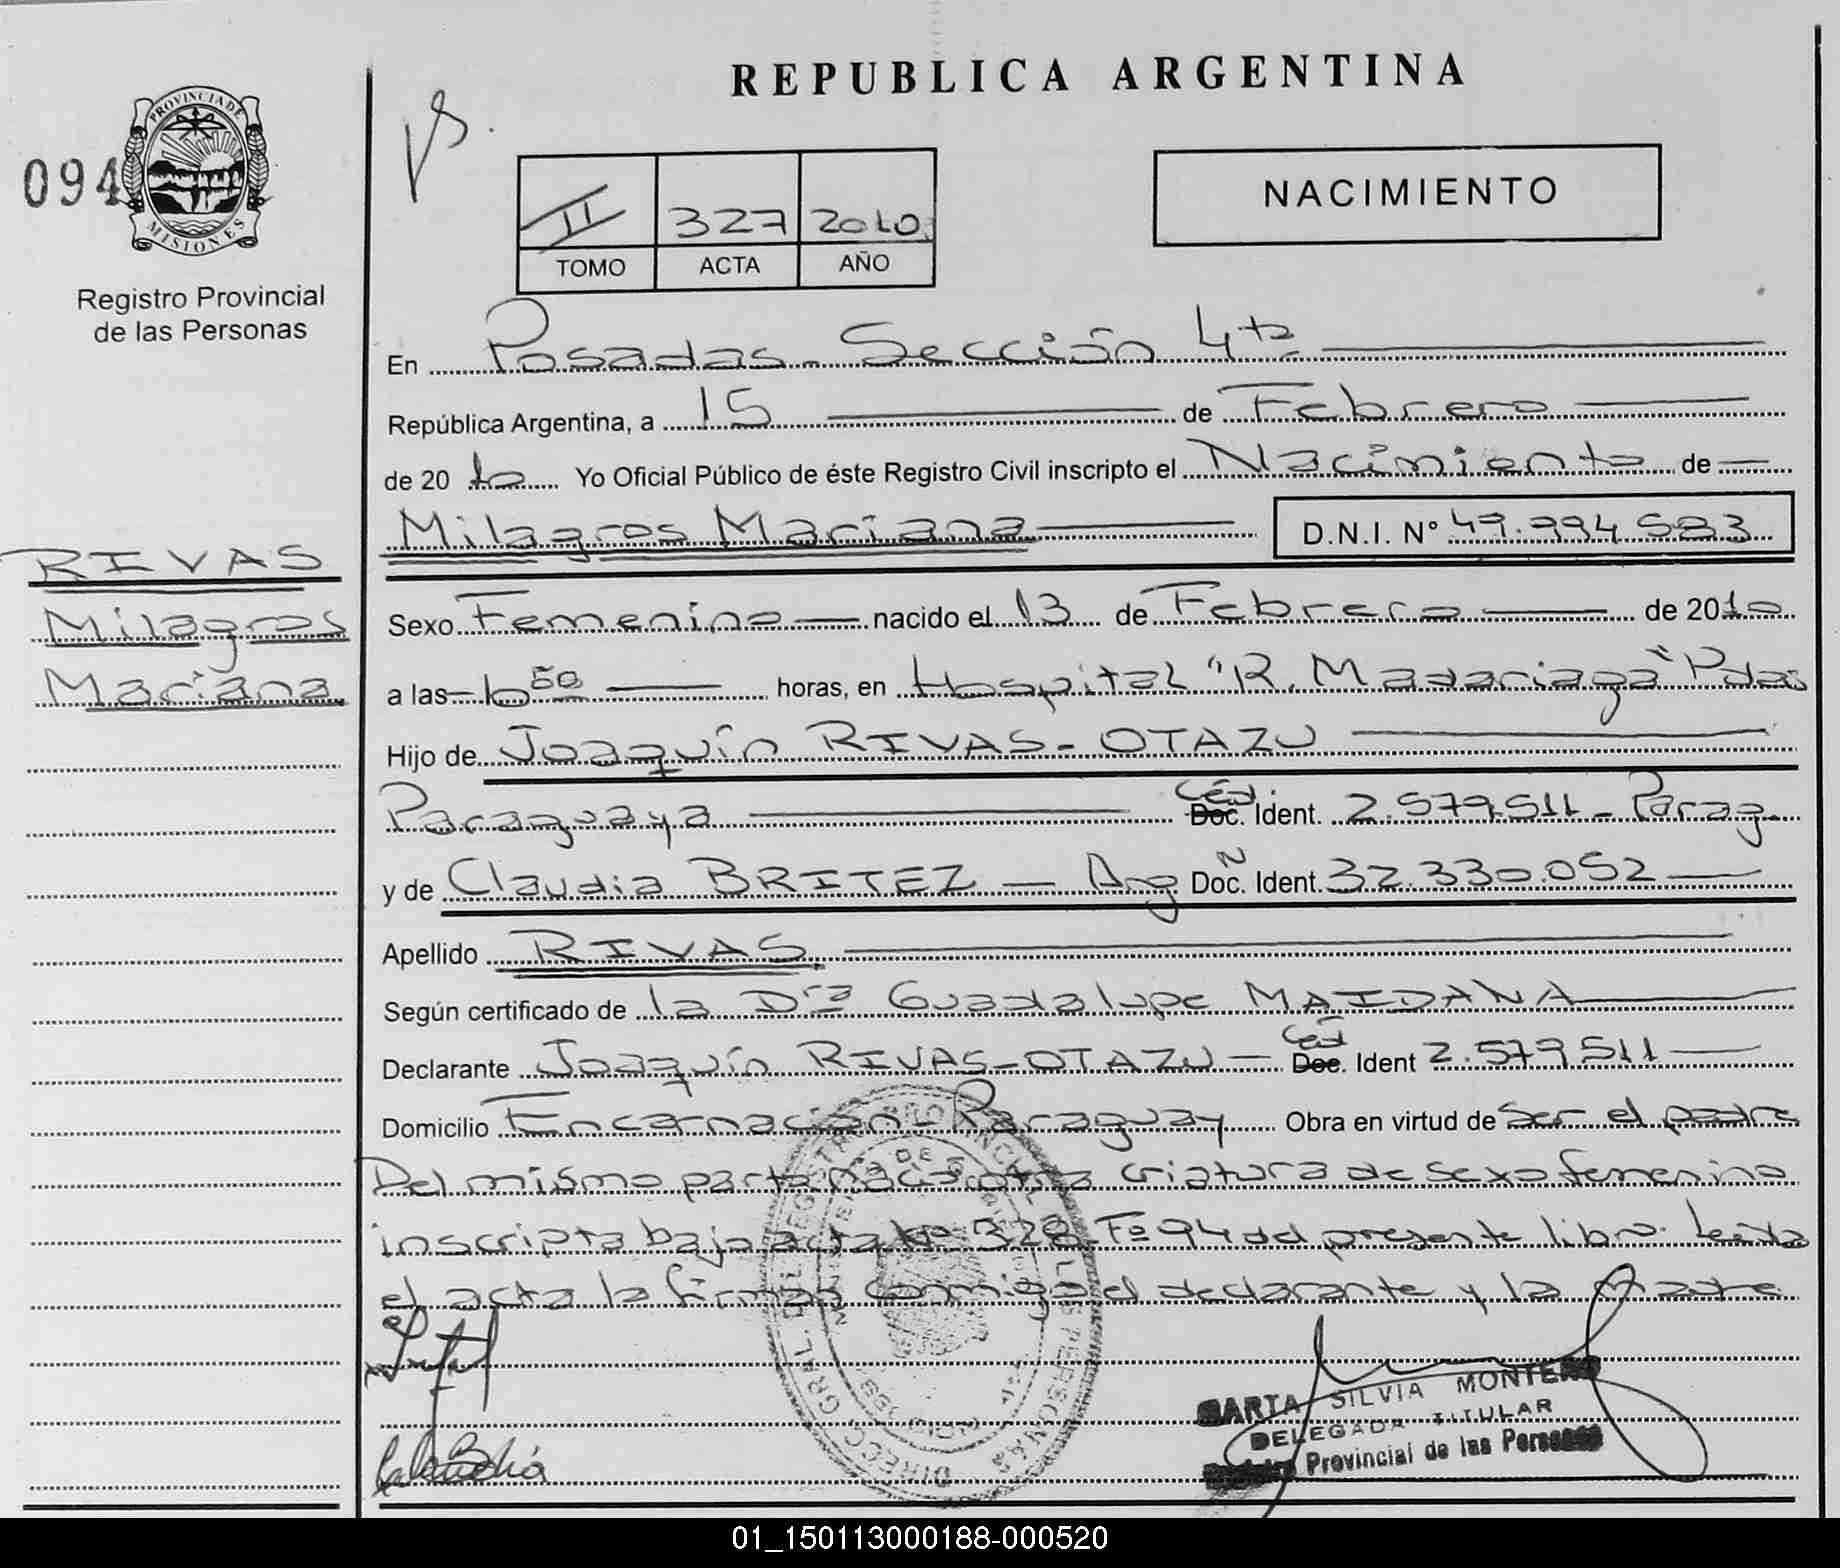 REPUBLICA ARGENTINA
PROVINCIA DE
MISIONES
094
Registro Provincial
de las Personas
II 327 2010
TOMO ACTA AÑO
NACIMIENTO
En Posadas - Sección 4ta
República Argentina, a 15 de Febrero
de 2010 Yo Oficial Público de éste Registro Civil inscripto el Nacimiento de
Milagros Mariana D.N.I. Nº 49.994.583
RIVAS
Milagros
Mariana
Sexo Femenino nacido el 13 de Febrero de 2010
a las horas, en Hospital "R. Madariaga" Pdas
Hijo de Joaquín RIVAS-OTAZU
Paraguaya Céd. Doc. Ident. 2.579.511 - Parag.
y de Claudia BRITEZ - Arg Doc. N Ident. 32.330.052
Apellido RIVAS
Según certificado de la Dra Guadalupe MAIDANA
Declarante Joaquín RIVAS-OTAZU - Céd Doc. Ident 2.579.511
Domicilio Encarnación - Paraguay Obra en virtud de ser el padre
Del mismo parto nació otra criatura de sexo femenino
inscripta bajo acta Nº 328 Fº 94 del presente libro. Leida
el acta la firman conmigo el declarante y la madre
MARTA SILVIA MONTERO
DELEGADA TITULAR
Registro Provincial de las Personas
01_150113000188-000520